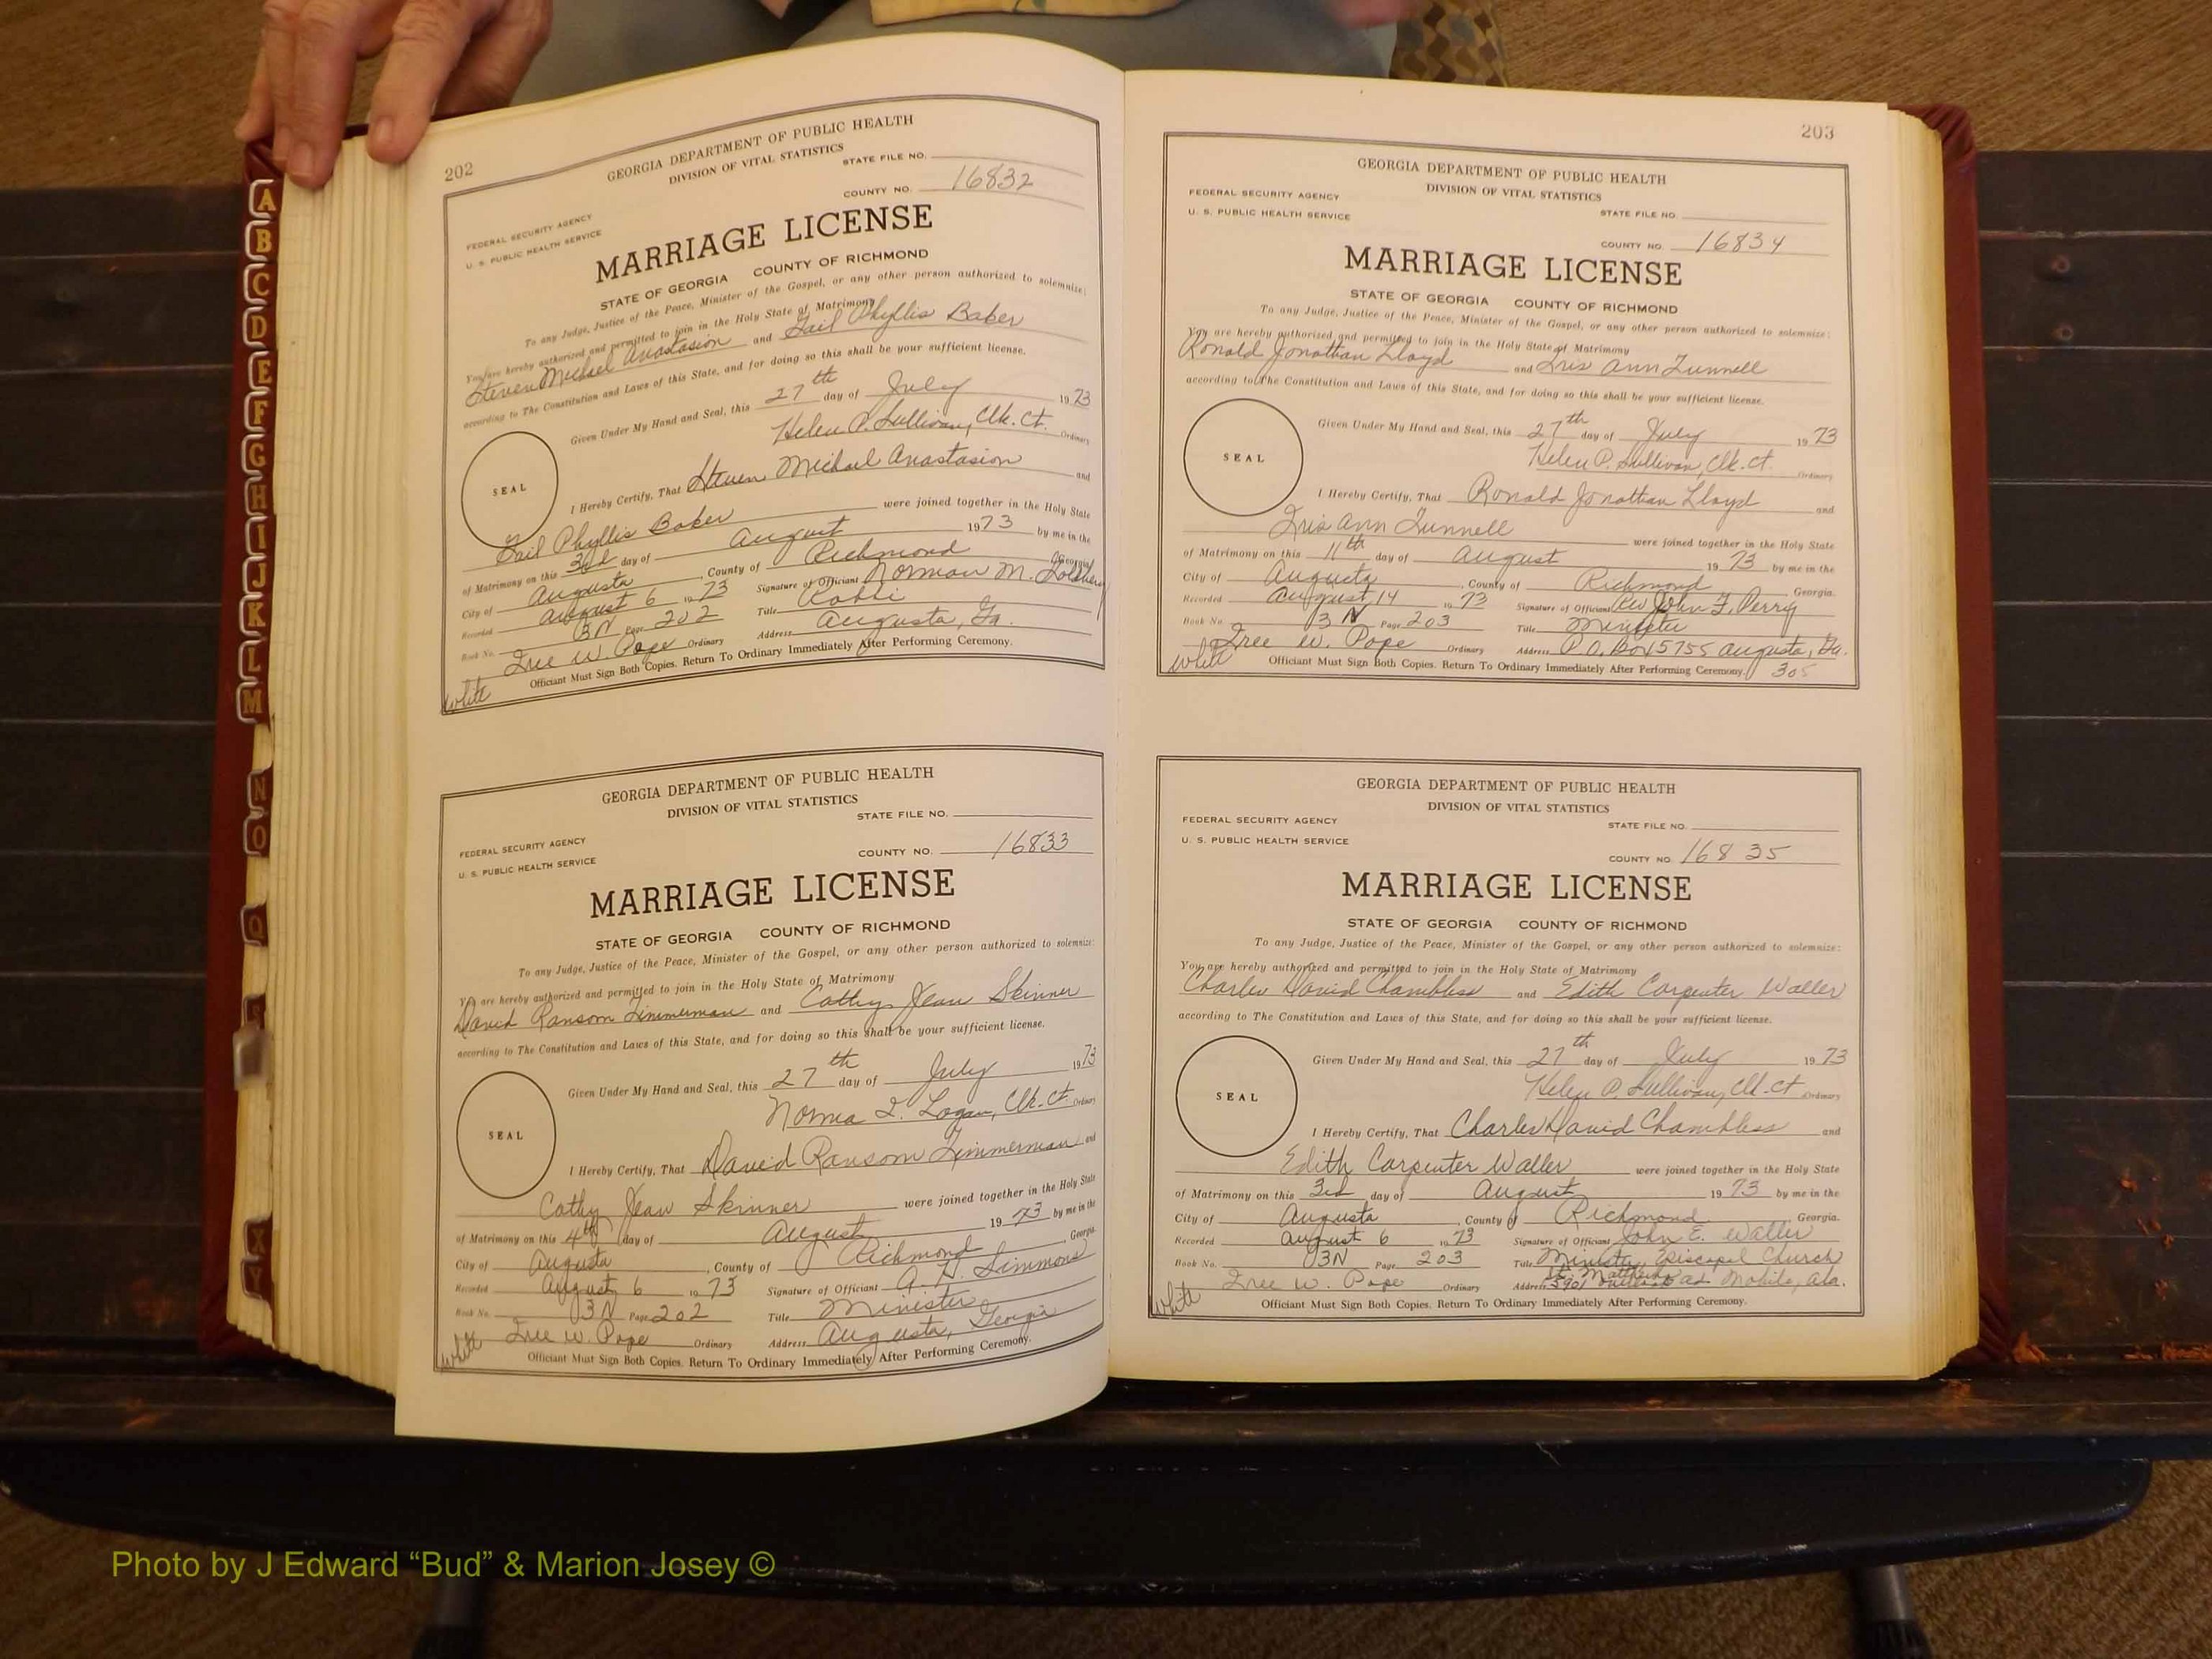 202
GEORGIA DEPARTMENT OF PUBLIC HEALTH
DIVISION OF VITAL STATISTICS
STATE FILE NO.
COUNTY NO. 16832
FEDERAL SECURITY AGENCY
U. S. PUBLIC HEALTH SERVICE
MARRIAGE LICENSE
STATE OF GEORGIA COUNTY OF RICHMOND
To any Judge, Justice of the Peace, Minister of the Gospel, or any other person authorized to solemnize:
You are hereby authorized and permitted to join in the Holy State of Matrimony
Steven Michael Anastasion and Gail Phyllis Baker
according to The Constitution and Laws of this State, and for doing so this shall be your sufficient license.
Given Under My Hand and Seal, this 27th day of July 1973
Helen P. Sullivan, Clk. Ct. Ordinary
SEAL
I Hereby Certify, That Steven Michael Anastasion and
Gail Phyllis Baker were joined together in the Holy State
of Matrimony on this 3rd day of August 1973 by me in the
City of Augusta, County of Richmond Georgia.
Recorded August 6 1973 Signature of Officiant Norman M.
Book No. 3N Page 202 Title Rabbi
W. Pope Ordinary Address Augusta, Ga.
Officiant Must Sign Both Copies. Return To Ordinary Immediately After Performing Ceremony.
White
GEORGIA DEPARTMENT OF PUBLIC HEALTH
DIVISION OF VITAL STATISTICS
STATE FILE NO.
FEDERAL SECURITY AGENCY
COUNTY NO. 16833
U. S. PUBLIC HEALTH SERVICE
MARRIAGE LICENSE
STATE OF GEORGIA COUNTY OF RICHMOND
To any Judge, Justice of the Peace, Minister of the Gospel, or any other person authorized to solemnize:
You are hereby authorized and permitted to join in the Holy State of Matrimony
David Ransom Zimmerman and Cathy Jean Skinner
according to The Constitution and Laws of this State, and for doing so this shall be your sufficient license.
Given Under My Hand and Seal, this 27th day of July 1973
Norma I. Logan, Clk. Ct. Ordinary
SEAL
I Hereby Certify, That David Ransom Zimmerman and
Cathy Jean Skinner were joined together in the Holy State
of Matrimony on this 4th day of August 1973 by me in the
City of Augusta, County of Richmond, Georgia.
Recorded August 6 1973 Signature of Officiant A. H. Simmons
Book No. 3N Page 202 Title Minister
W. Pope Ordinary Address Augusta, Georgia
Officiant Must Sign Both Copies. Return To Ordinary Immediately After Performing Ceremony.
White
203
GEORGIA DEPARTMENT OF PUBLIC HEALTH
DIVISION OF VITAL STATISTICS
FEDERAL SECURITY AGENCY
U. S. PUBLIC HEALTH SERVICE
STATE FILE NO.
COUNTY NO. 16834
MARRIAGE LICENSE
STATE OF GEORGIA COUNTY OF RICHMOND
To any Judge, Justice of the Peace, Minister of the Gospel, or any other person authorized to solemnize:
You are hereby authorized and permitted to join in the Holy State of Matrimony
Ronald Jonathan Lloyd and Iris Ann Tunnell
according to The Constitution and Laws of this State, and for doing so this shall be your sufficient license.
Given Under My Hand and Seal, this 27th day of July 1973
Helen P. Sullivan, Clk. Ct. Ordinary
SEAL
I Hereby Certify, That Ronald Jonathan Lloyd and
Iris Ann Tunnell were joined together in the Holy State
of Matrimony on this 11th day of August 1973 by me in the
City of Augusta, County of Richmond Georgia.
Recorded August 14 1973 Signature of Officiant Rev John F. Perry
Book No. 3N Page 203 Title Minister
W. Pope Ordinary Address P.O. Box 5755 Augusta, Ga.
White Officiant Must Sign Both Copies. Return To Ordinary Immediately After Performing Ceremony. 305
GEORGIA DEPARTMENT OF PUBLIC HEALTH
DIVISION OF VITAL STATISTICS
FEDERAL SECURITY AGENCY
STATE FILE NO.
U. S. PUBLIC HEALTH SERVICE
COUNTY NO. 16835
MARRIAGE LICENSE
STATE OF GEORGIA COUNTY OF RICHMOND
To any Judge, Justice of the Peace, Minister of the Gospel, or any other person authorized to solemnize:
You are hereby authorized and permitted to join in the Holy State of Matrimony
Charles David Chambless and Edith Carpenter Waller
according to The Constitution and Laws of this State, and for doing so this shall be your sufficient license.
Given Under My Hand and Seal, this 27th day of July 1973
Helen P. Sullivan, Clk. Ct. Ordinary
SEAL
I Hereby Certify, That Charles David Chambless and
Edith Carpenter Waller were joined together in the Holy State
of Matrimony on this 3rd day of August 1973 by me in the
City of Augusta, County of Richmond Georgia.
Recorded August 6 1973 Signature of Officiant John E. Waller
Book No. 3N Page 203 Title Minister, Episcopal Church
W. Pope Ordinary Address 5901 Mobile, Ala.
White Officiant Must Sign Both Copies. Return To Ordinary Immediately After Performing Ceremony.
A
B
C
D
E
F
G
H
I
J
K
L
M
N
O
Q
S
X
Y
Photo by J Edward “Bud” & Marion Josey ©